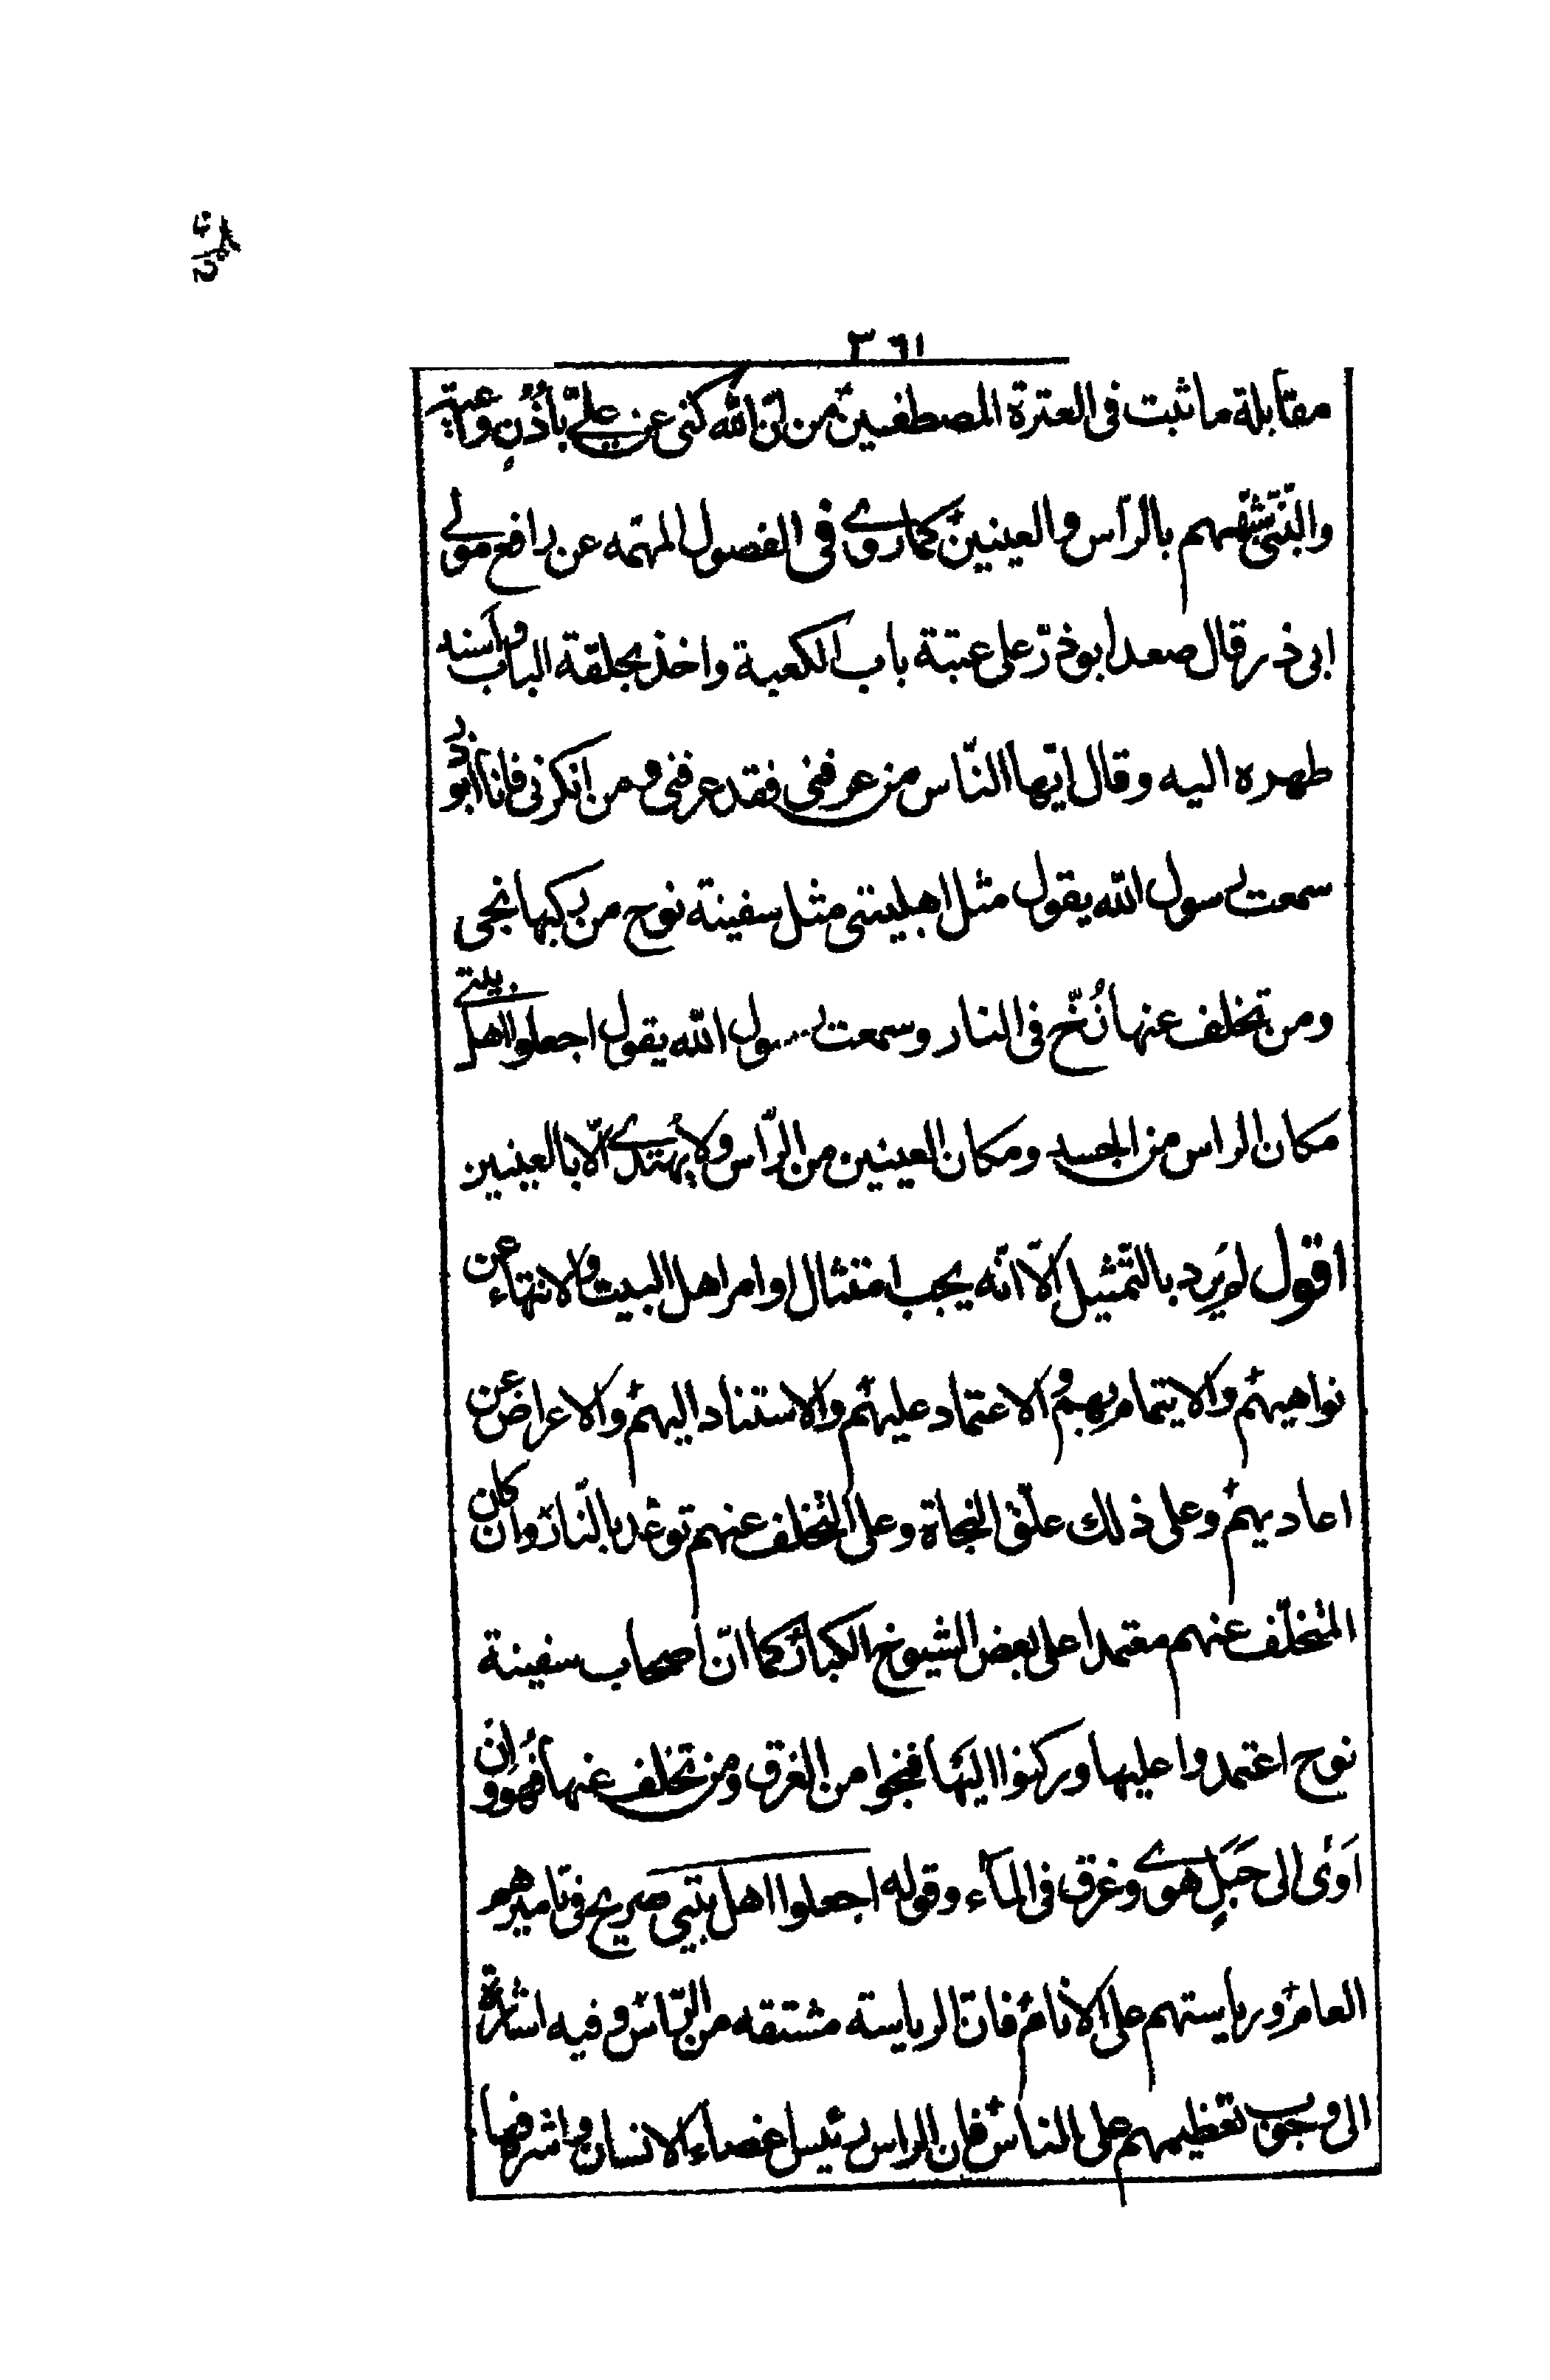 ٣٦١
مقابلة ما ثبت فى العترة المصطفين من انّ الله كنى عن علىّ باُذُنٍ واعية
والنّبى شبّههم بالرّاس والعينين كما روى فى الفصول المهمّه عن رافع مولى
ابى ذر قال صعد ابوذرّ على عتبة باب الكعبة واخذ بحلقة الباب واسند
ظهره اليه وقال ايّها النّاس من عرفنى فقد عرفنى ومن انكرنى فانا ابوذر
سمعت رسول الله يقول مثل اهلبيتى مثل سفينة نوح من ركبها نجى
ومن تخلف عنها زُخّ فى النار وسمعت رسول الله يقول اجعلوا اهل بيتى
مكان الراس من الجسد ومكان العينين من الرّاس ولا يهتدى الّا بالعينين
اقول لم يرد بالتّمثيل الّا انّه يجب امتثال اوامر اهل البيت والانتهاء عن
نواهيهم والايتمام بهم والاعتماد عليهم والاستناد اليهم والاعراض عن
اعاديهم وعلى ذلك علّق النجاة وعلى التخلف عنهم توعّد بالنّار وان كان
المتخلّف عنهم معتمدا على بعض الشيوخ الكبار كما انّ اصحاب سفينة
نوح اعتمدوا عليها وركنوا اليها فنجوا من الغرق ومن تخلف عنها فهو وان
اَوى الى جَبَلٍ هوى وغرق فى المآء وقوله اجعلوا اهل بيتى صريح فى تاميرهم
العام ورياستهم على الانام فانّ الرياسته مشتقه من الرّاس وفيه اشارة
الى وجوب تعظيمهم على الناس فان الراس رئيس اعضاء الانسان واشرفها